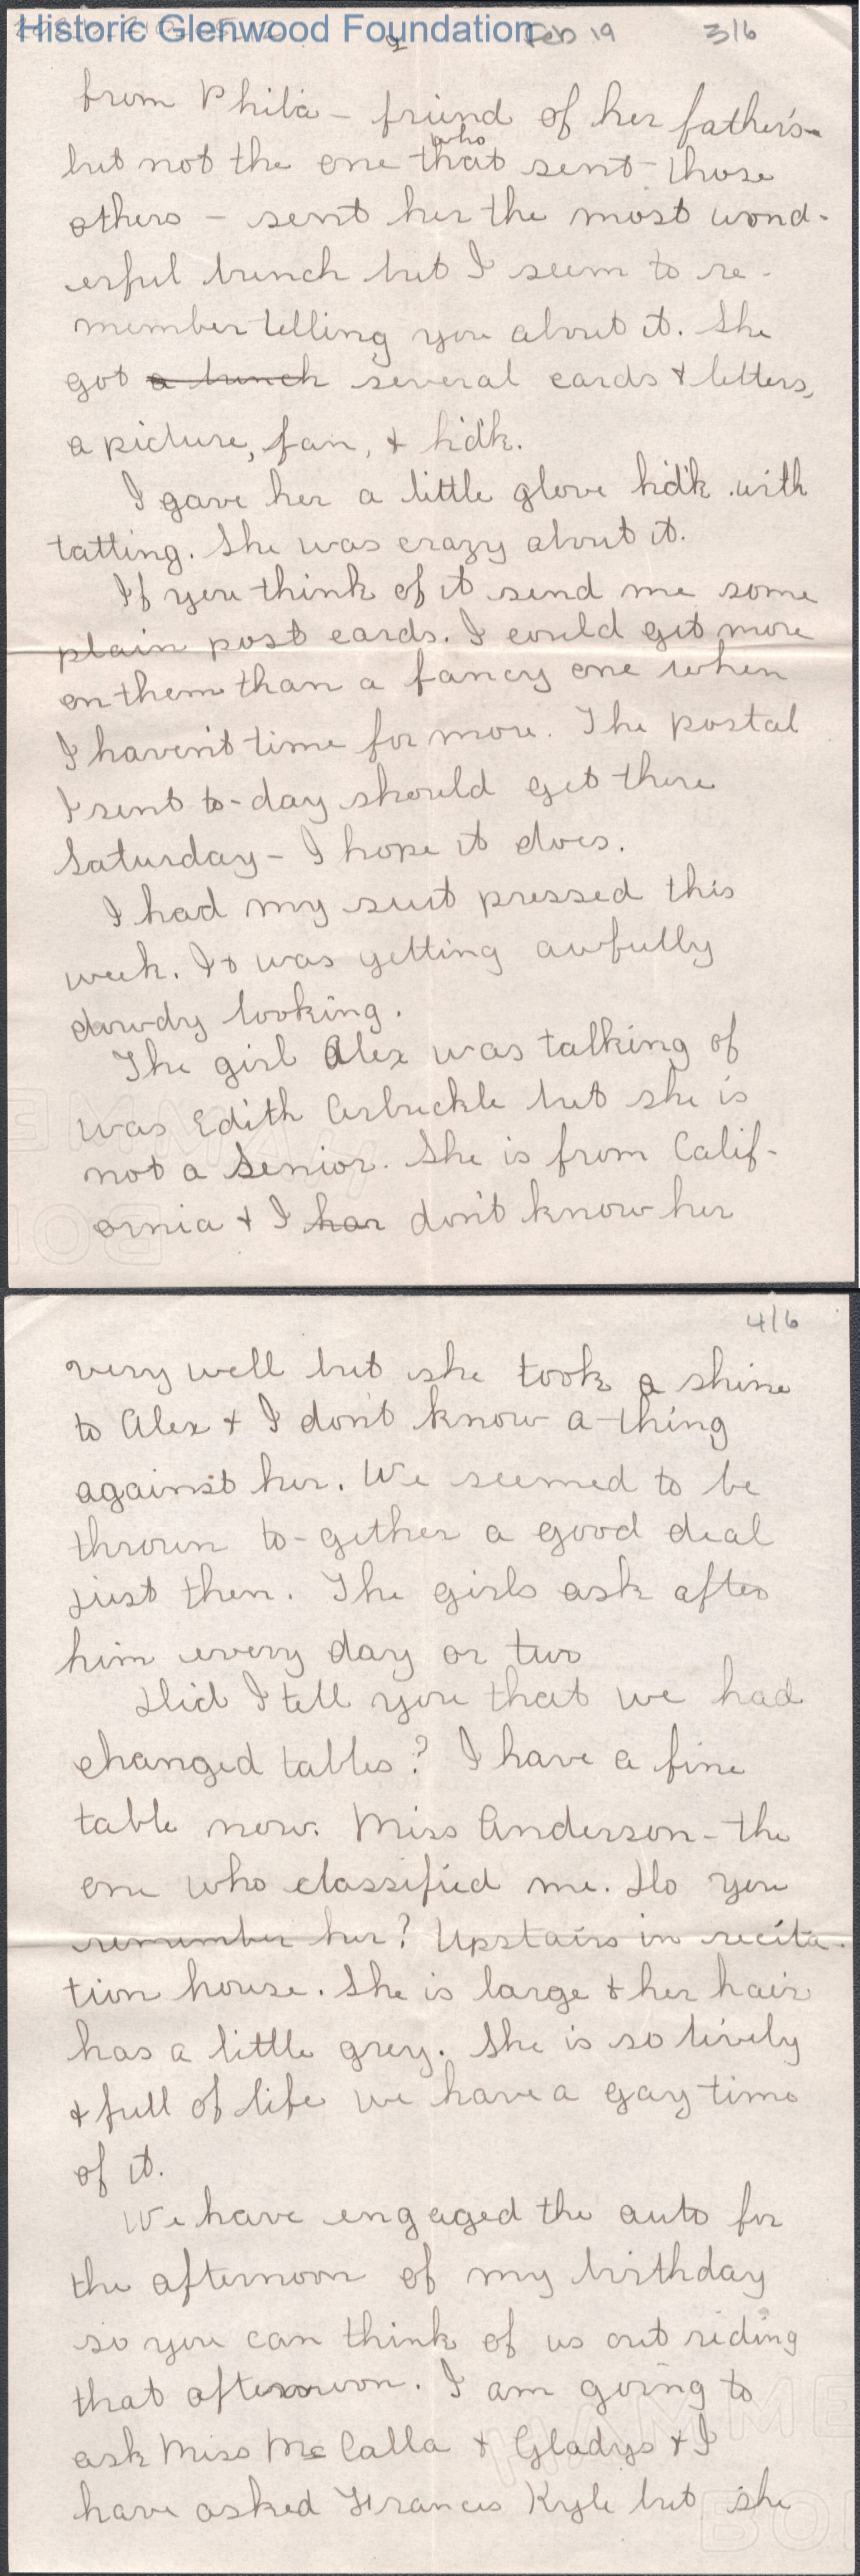 Historic Glenwood Foundation
Feb 19 3/6
from Phila - friend of her father's -
but not the one that who sent those
others - sent her the most wond-
erful bunch but I seem to re-
member telling you about it. She
got a bunch several cards & letters,
a picture, fan, & h'dk.
I gave her a little glove h'dk with
tatting. She was crazy about it.
If you think of it send me some
plain post cards. I could get more
on them than a fancy one when
I haven't time for more. The postal
I sent to-day should get there
Saturday - I hope it does.
I had my suit pressed this
week. It was getting awfully
dowdy looking.
The girl Alex was talking of
was Edith Arbuckle but she is
not a Senior. She is from Calif-
ornia & I hav don't know her
4/6
very well but she took a shine
to Alex & I don't know a-thing
against her. We seemed to be
thrown to-gether a good deal
just then. The girls ask after
him every day or two
Did I tell you that we had
changed tables? I have a fine
table now. Miss Anderson - the
one who classified me. Do you
remember her? Upstairs in recita-
tion house. She is large & her hair
has a little grey. She is so lively
& full of life we have a gay time
of it.
We have engaged the auto for
the afternoon of my birthday
so you can think of us out riding
that afternoon. I am going to
ask Miss McCalla & Gladys & I
have asked Frances Kyle but she